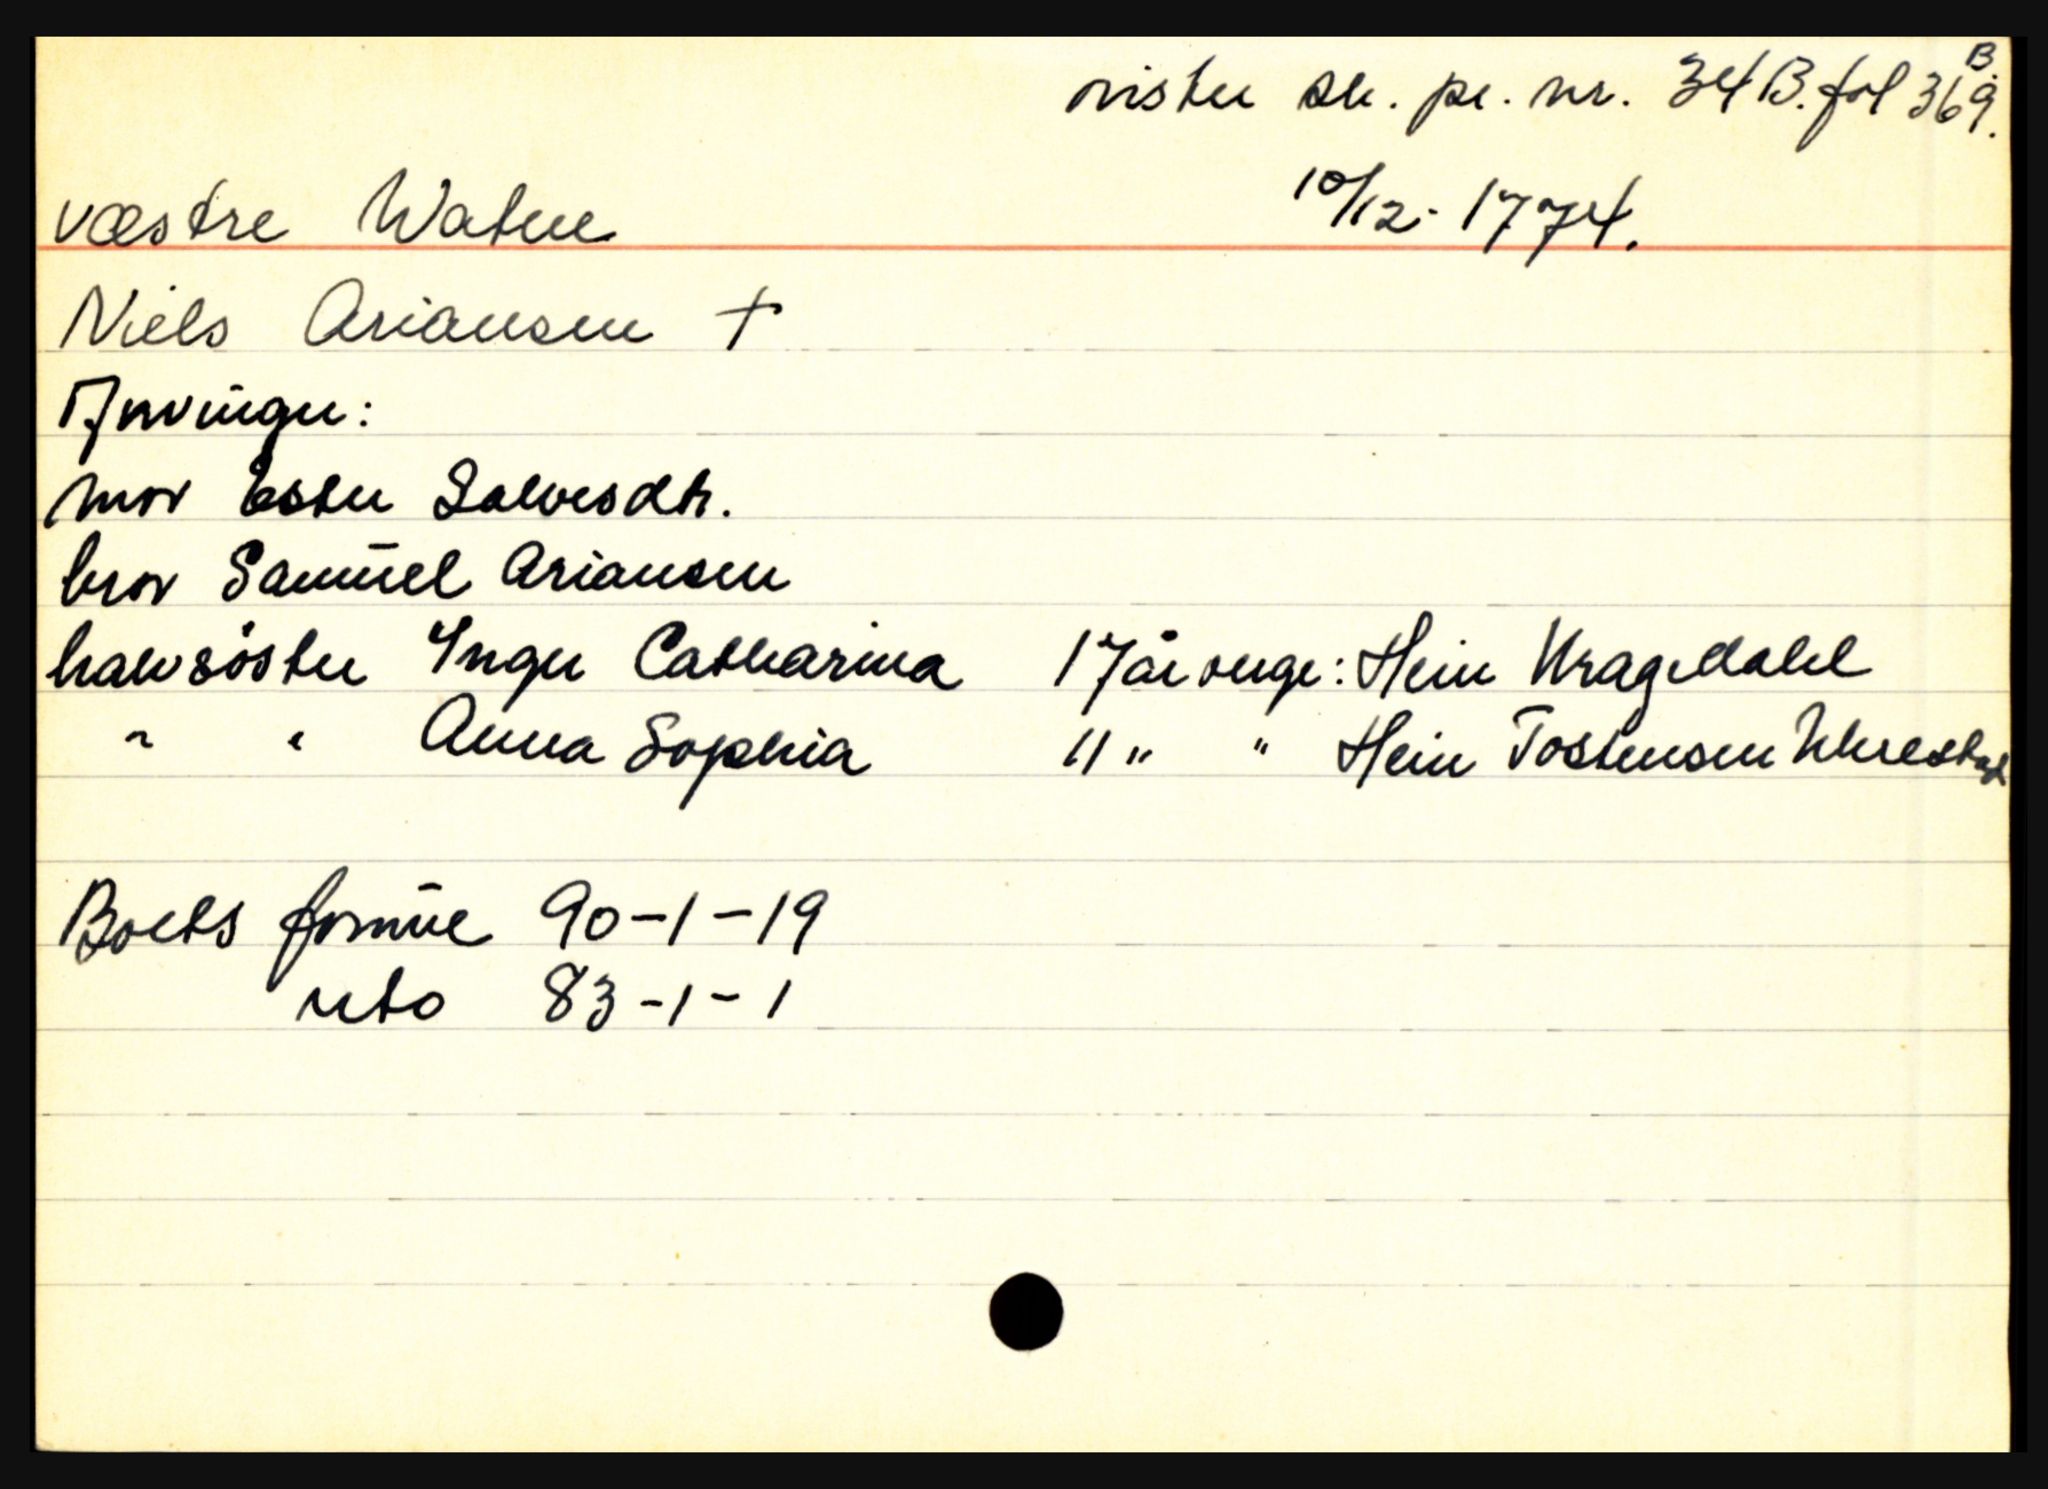 lister sk. pr. nr. 34 B. fol 369 B.
10/12. 1774.
væstre Watne
Niels Ariansen †
Arvinger:
mor Ester Salvesdtr.
bror Samuel Ariansen
halvsöster Inger Catharina 17 år verge: Hein Kragedahl
" " Anna Sophia 11 " " Hein Tostensen Uhrestad
Boets formue 90-1-19
neto 83-1-1